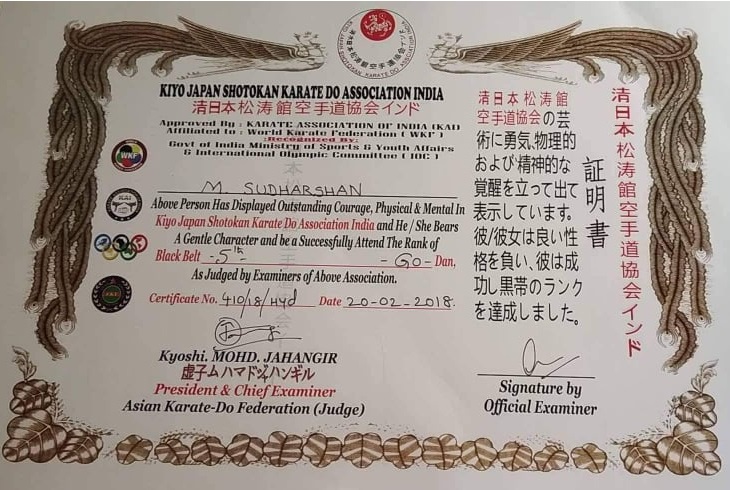 KIYO JAPAN SHOTOKAN KARATE DO ASSOCIATION INDIA
清日本松涛館空手道協会インド
Approved By : KARATE ASSOCIATION OF INDIA (KAI)
Affiliated to : World Karate Federation ( WKF )
:Recognized By:
Govt of India Ministry of Sports & Youth Affairs
& International Olympic Committee ( IOC )
M. SUDHARSHAN
Above Person Has Displayed Outstanding Courage, Physical & Mental In
Kiyo Japan Shotokan Karate Do Association India and He / She Bears
A Gentle Character and be a Successfully Attend The Rank of
Black Belt -5th- - GO - Dan,
As Judged by Examiners of Above Association.
Certificate No. 410/18/Hyd Date 20-02-2018.
Kyoshi. MOHD. JAHANGIR
虚子ムハマドッィハンギル
President & Chief Examiner
Asian Karate-Do Federation (Judge)
清日本松涛館
空手道協会の芸
術に勇気、物理的
および精神的な
覚醒を立って出て
表示しています。
彼/彼女は良い性
格を負い、彼は成
功し黒帯のランク
を達成しました。
証明書
清日本松涛館空手道協会インド
Signature by
Official Examiner
WKF
KAI